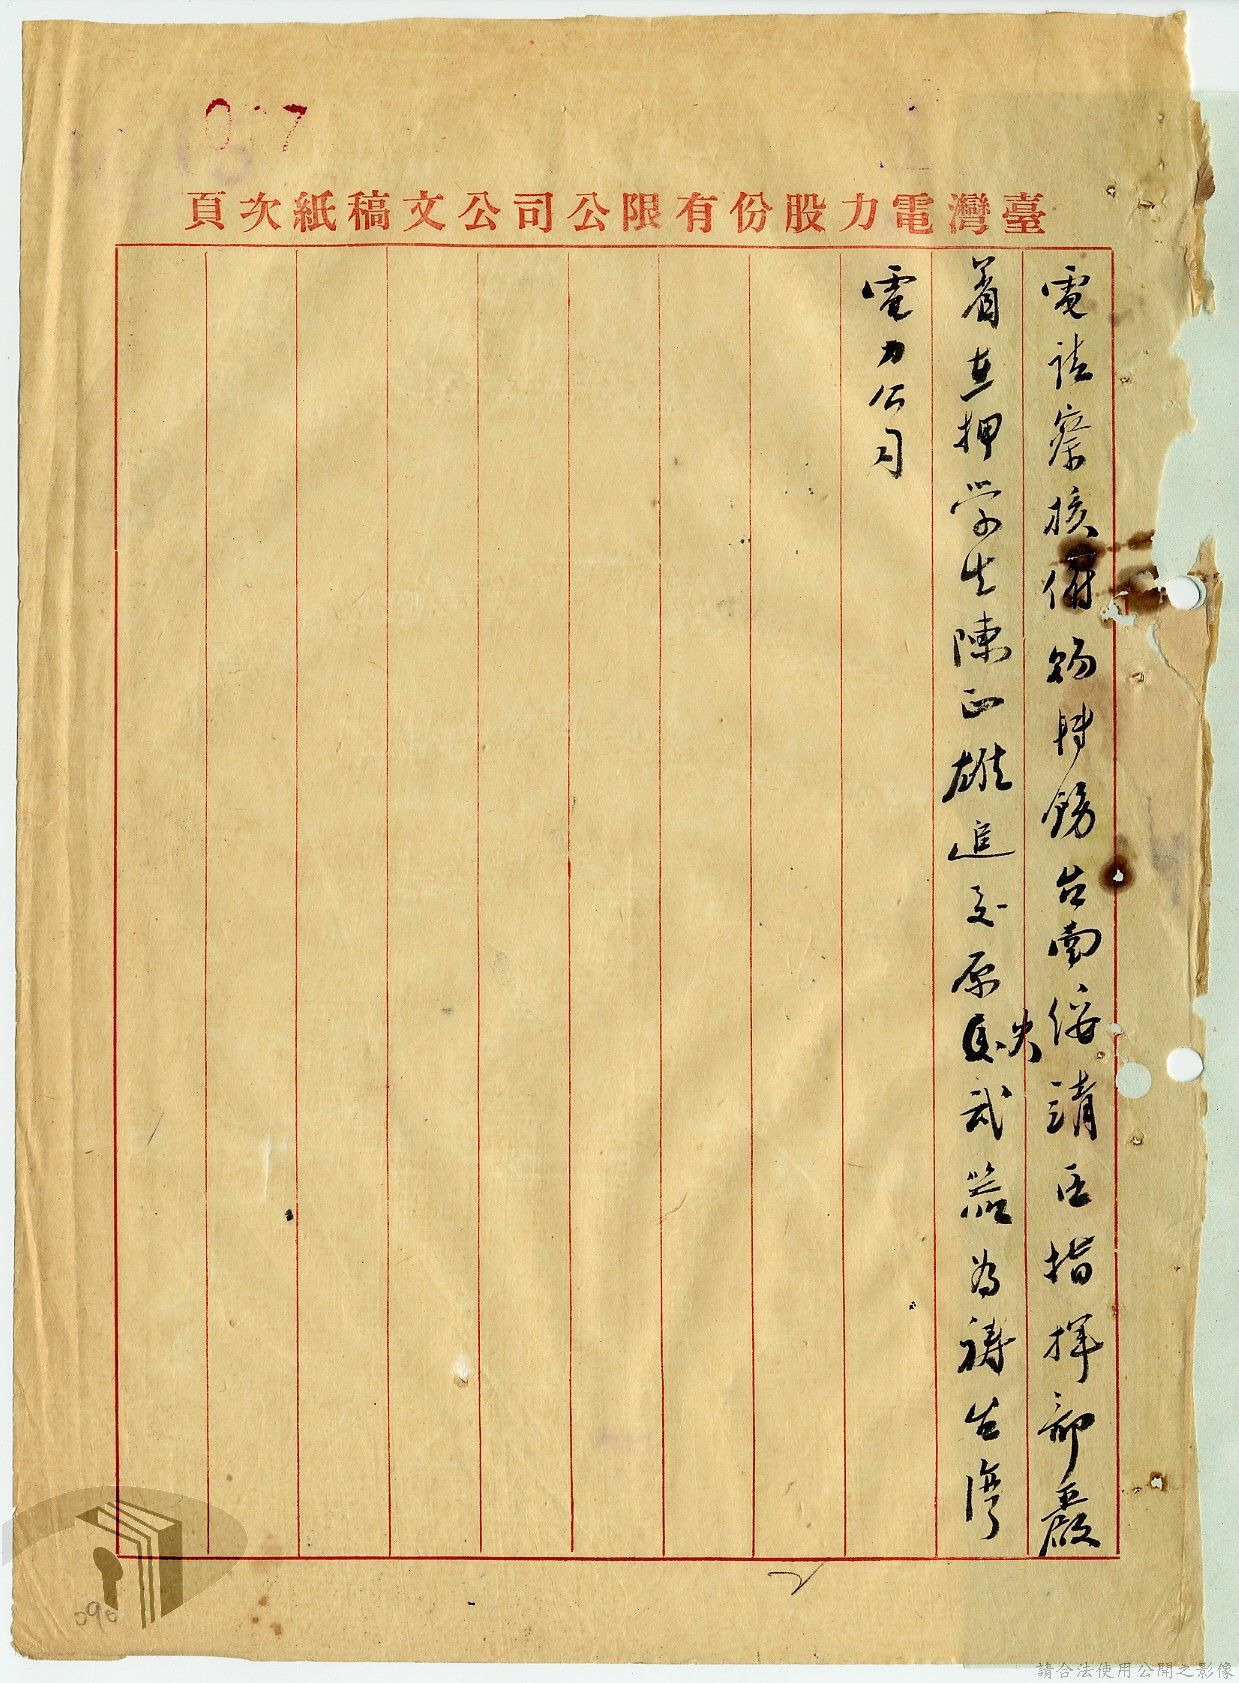 臺灣電力股份有限公司公文稿紙次頁
電請察核俯賜轉飭台南綏靖區指揮部嚴
着在押學生陳正雄追交原失武器為禱台灣
電力公司
090
請合法使用公開之影像